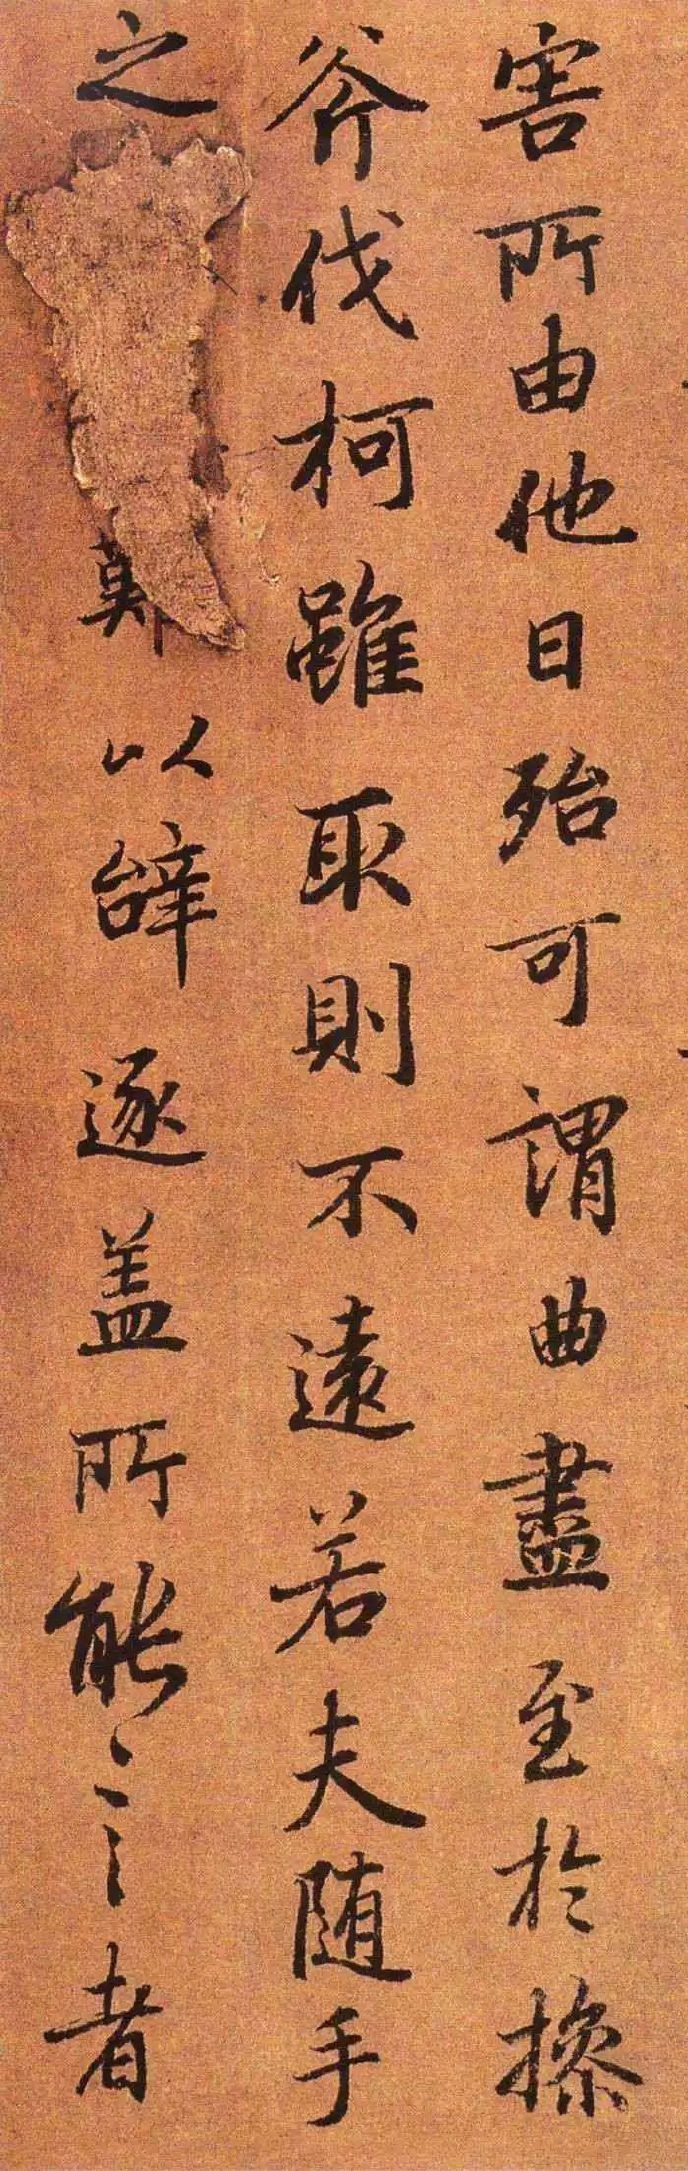 害所由他日殆可謂曲盡至於操
斧伐柯雖取則不遠若夫随手
之以辝逐盖所能言者